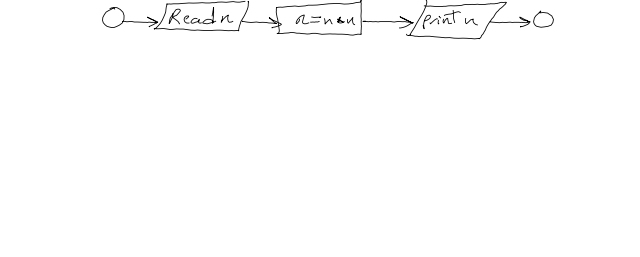 Read n n=n*n print n